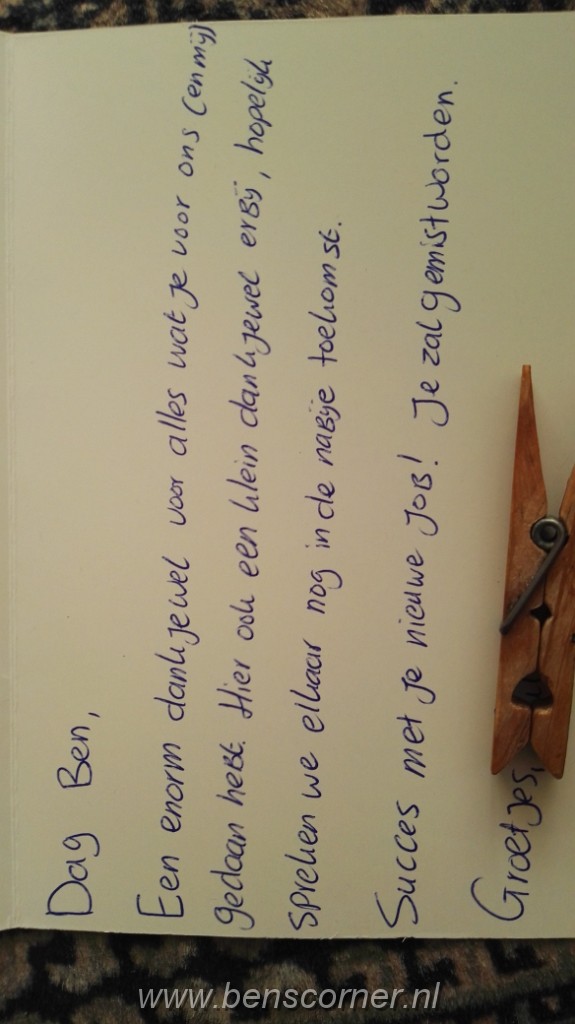 Dag Ben,
Een enorm dankjewel voor alles wat je voor ons (en mij)
gedaan hebt. Hier ook een klein dankjewel erbij, hopelijk
spreken we elkaar nog in de nabije toekomst.
Succes met je nieuwe job! Je zal gemist worden.
Groetjes,
www.benscorner.nl